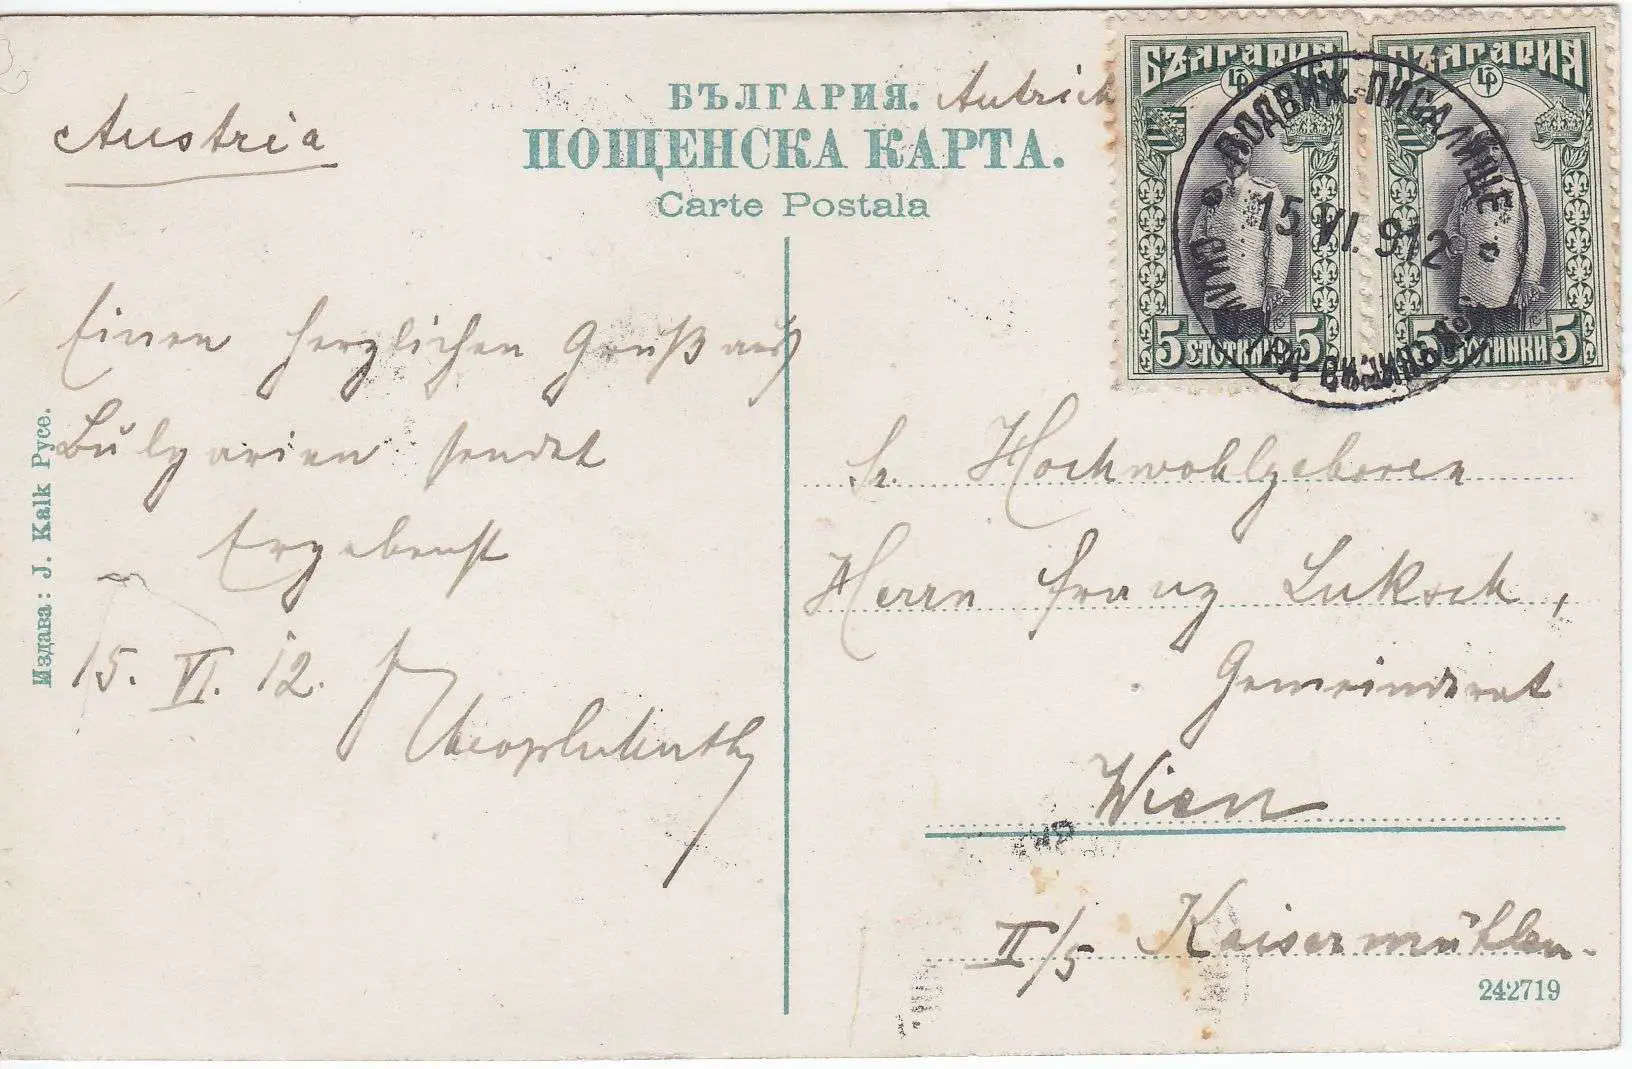 Austria
БЪЛГАРИЯ.
ПОЩЕНСКА КАРТА.
Carte Postala
БЪЛГАРИЯ
БЪЛГАРИЯ
ПОДВИЖ. ПИСАЛИЩЕ
15.VI.912
5 СТОТИНКИ 5
5 СТОТИНКИ 5
Einen herzlichen Gruß aus
Bulgarien sendet
Ergebenst
15. VI. 12.
Sr. Hochwohlgeboren
Herrn Franz Luksch,
Gemeinderat
Wien
II/5 Kaisermühlen.
242719
Издава: J. Kalk Русе.